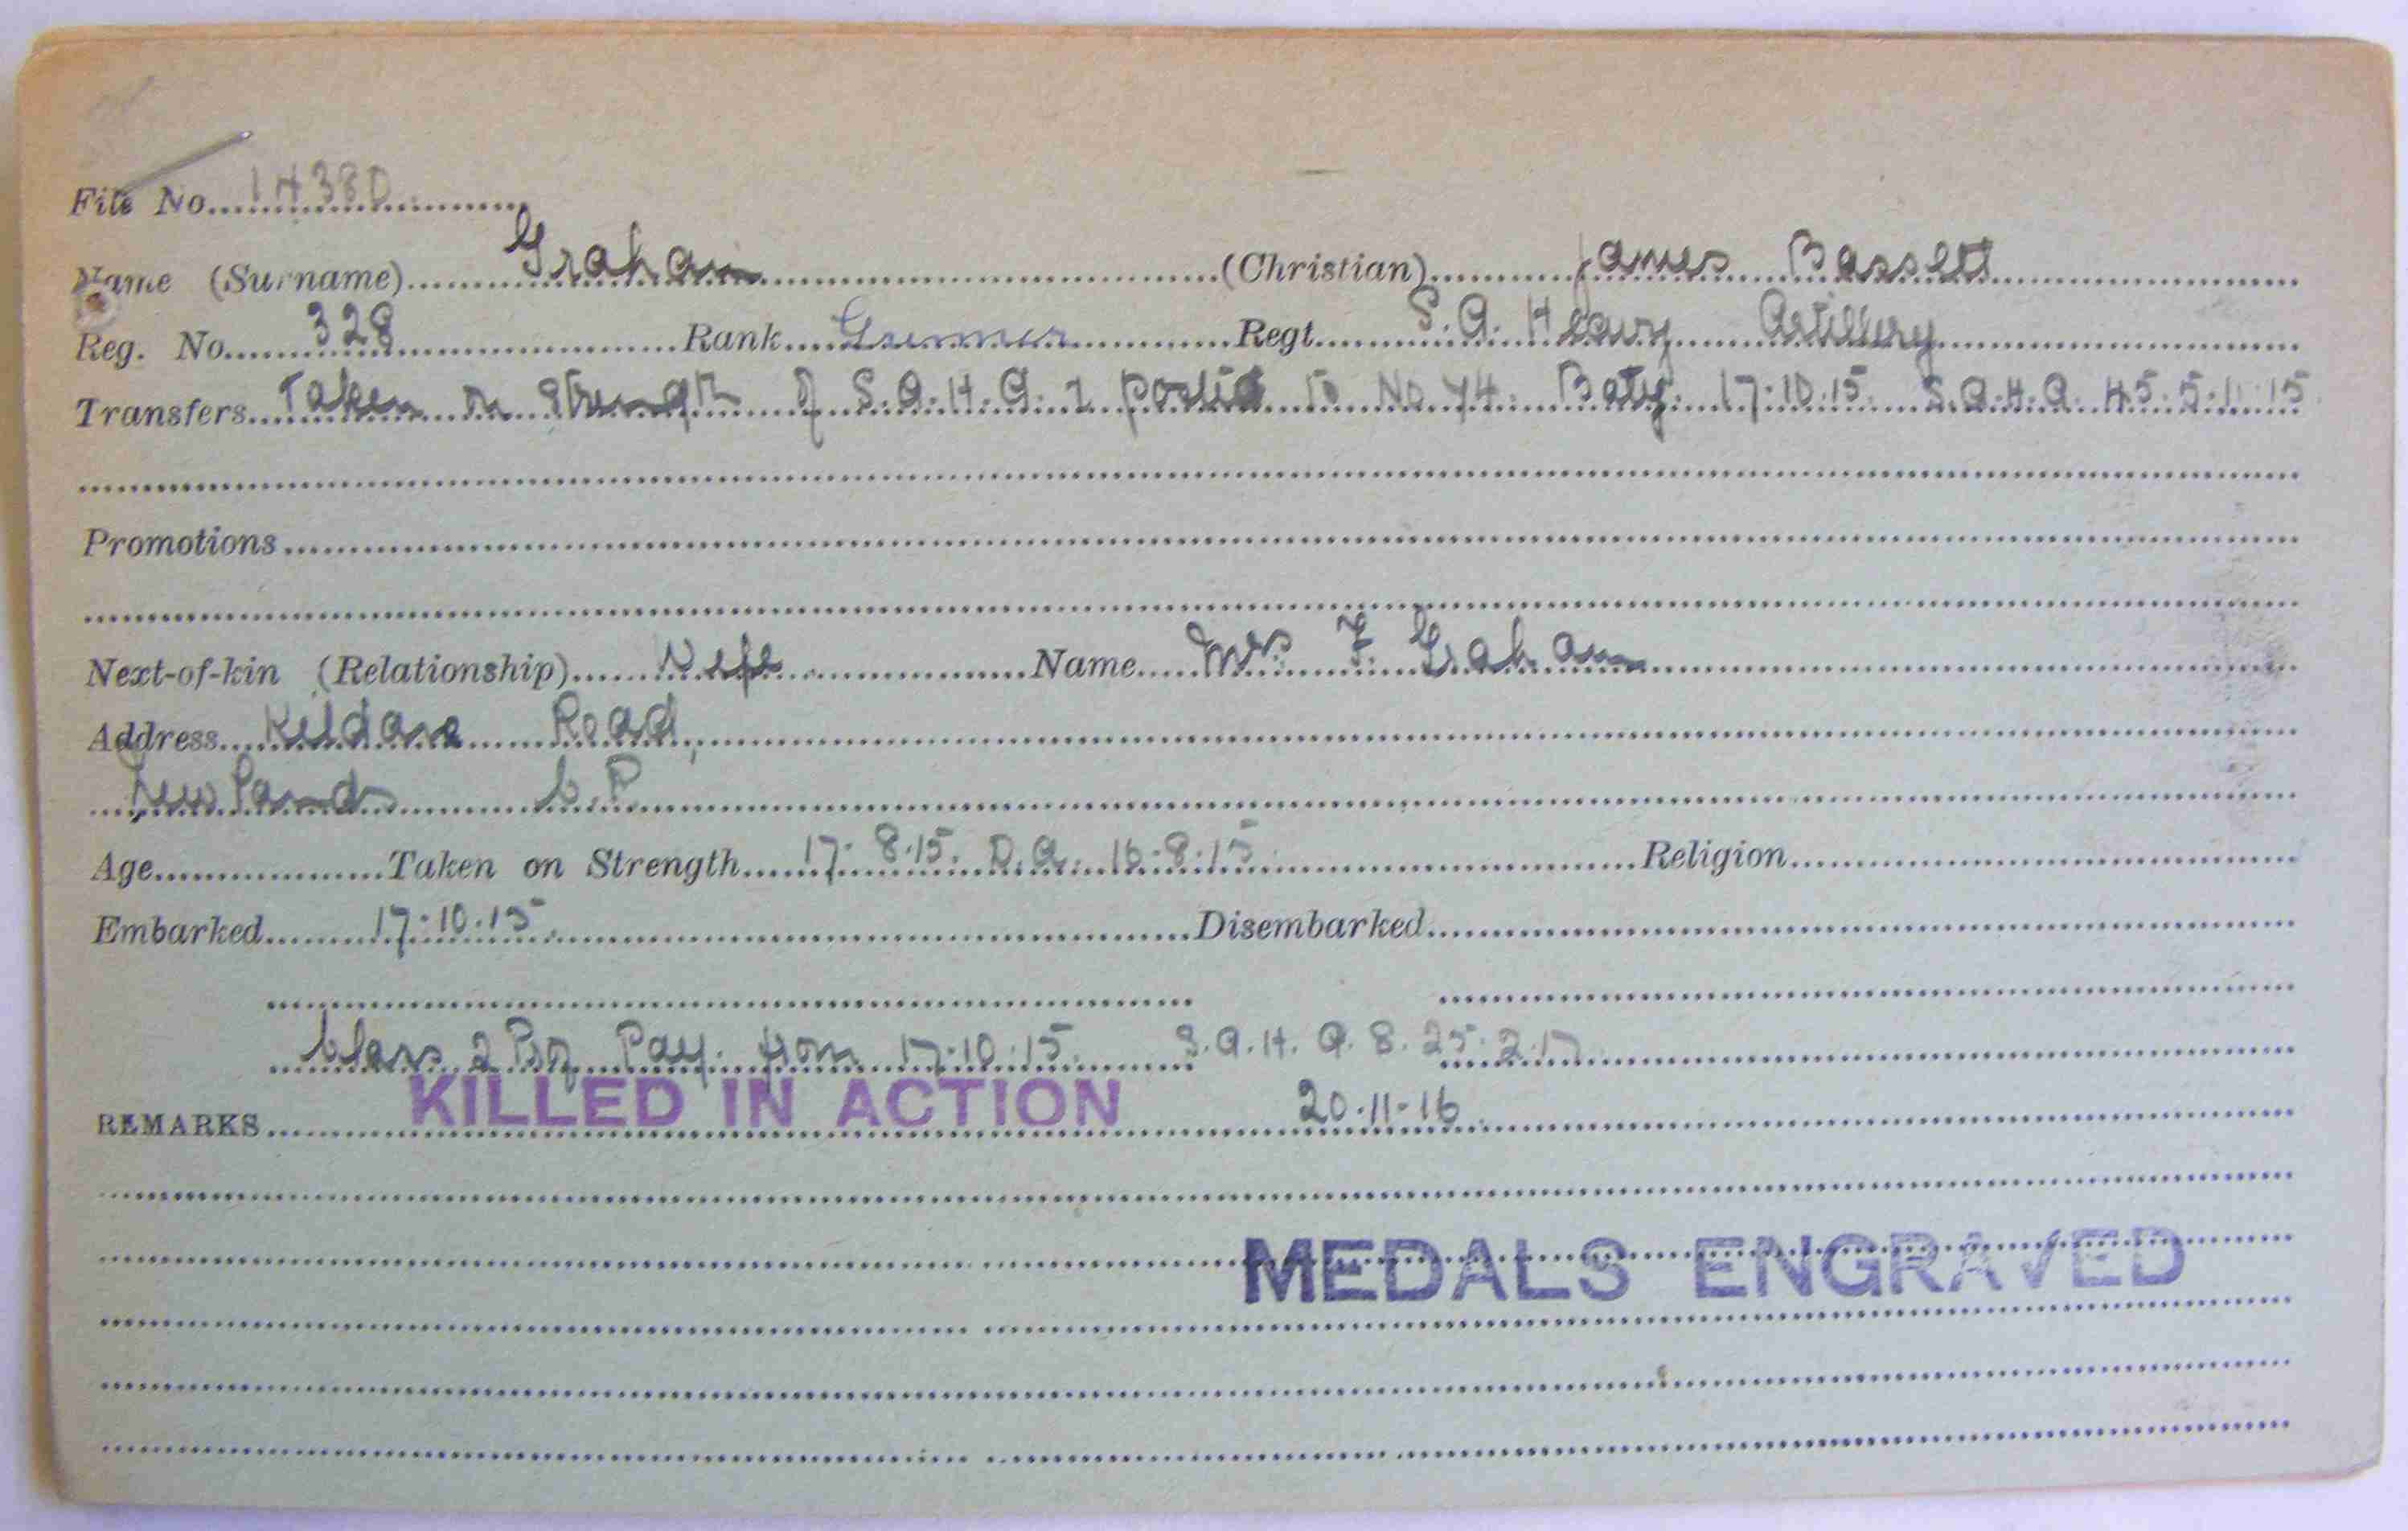 File No. 14380
Name (Surname) Graham (Christian) James Bassett
Reg. No. 328 Rank Gunner Regt. S.A. Heavy Artillery
Transfers Taken on Strength of S.A.H.A. & posted to No 74 Baty. 17.10.15. S.A.H.A. H5. 5.11.15
Promotions
Next-of-kin (Relationship) Wife Name Mrs F. Graham
Address Kildare Road,
Newlands C.P.
Age Taken on Strength 17.8.15. D.A. 16.8.15. Religion
Embarked 17.10.15. Disembarked
Class 2 Pay from 17.10.15. S.A.H.A. 8. 25.2.17
REMARKS KILLED IN ACTION 20.11.16.
MEDALS ENGRAVED